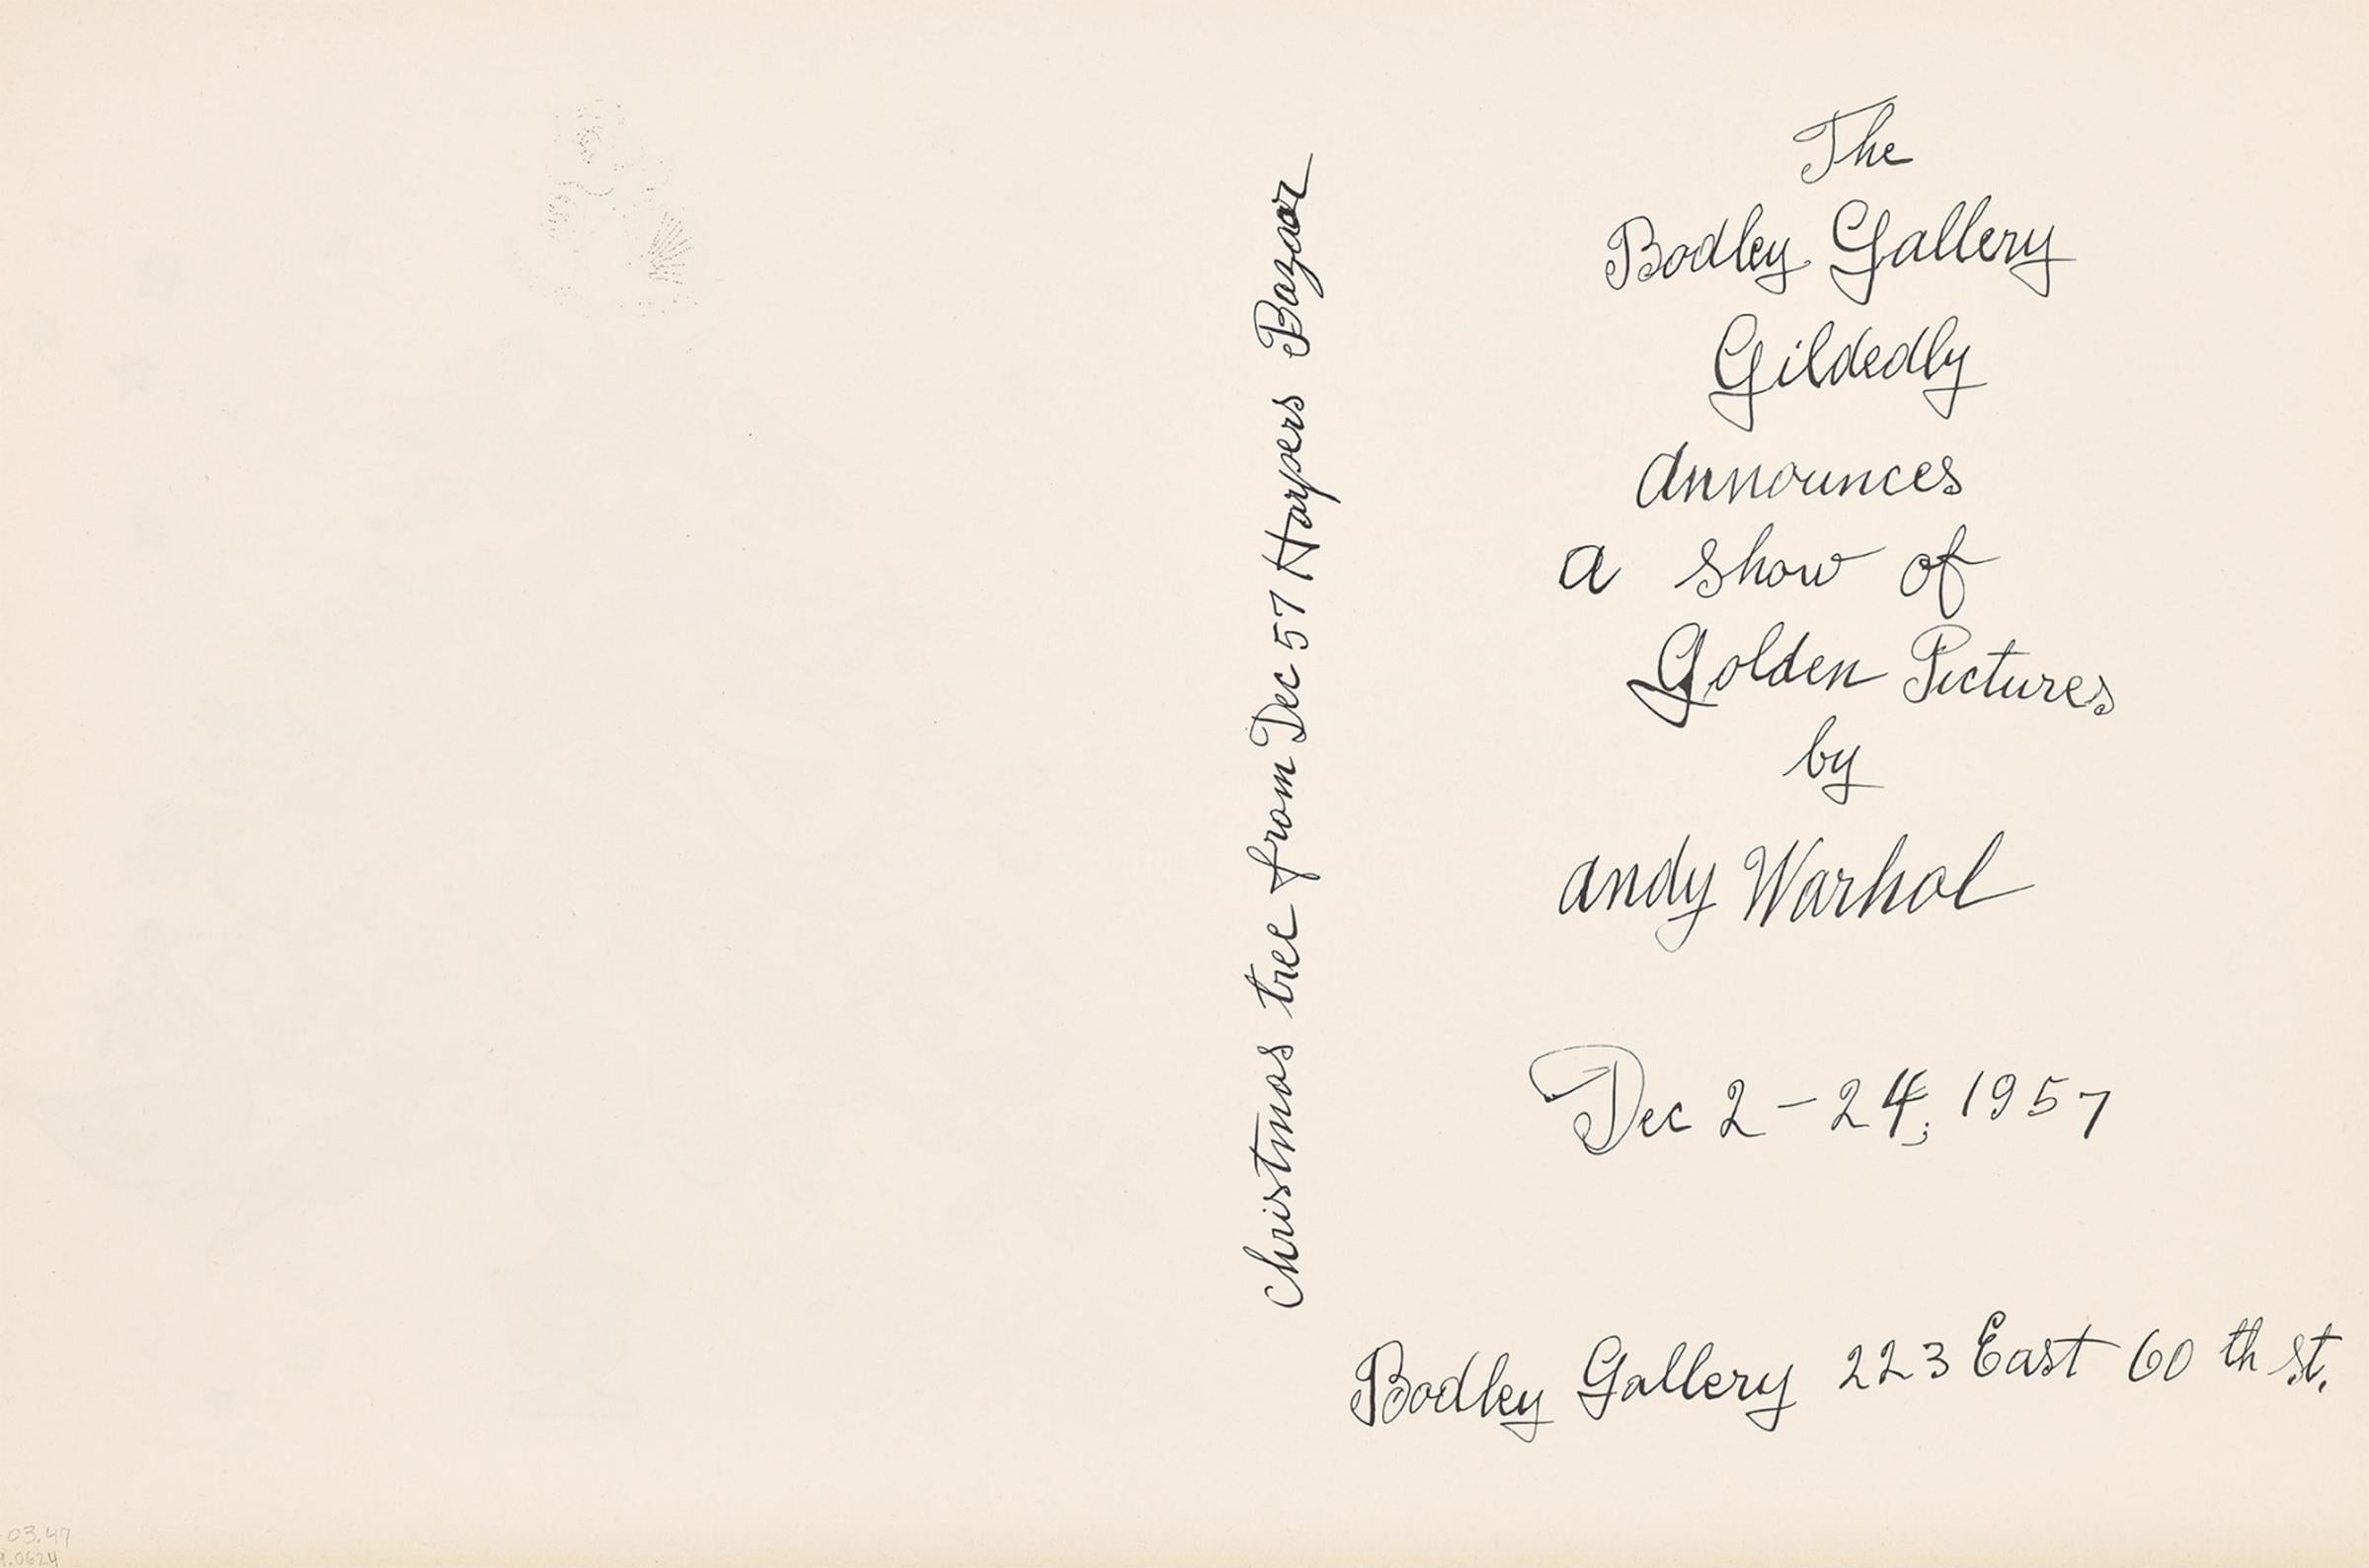 Christmas tree from Dec 57 Harpers Bazaar
The
Bodley Gallery
Gildedly
announces
a show of
Golden Pictures
by
andy Warhol
Dec 2-24, 1957
Bodley Gallery 223 East 60 th st.
03.47
.0624